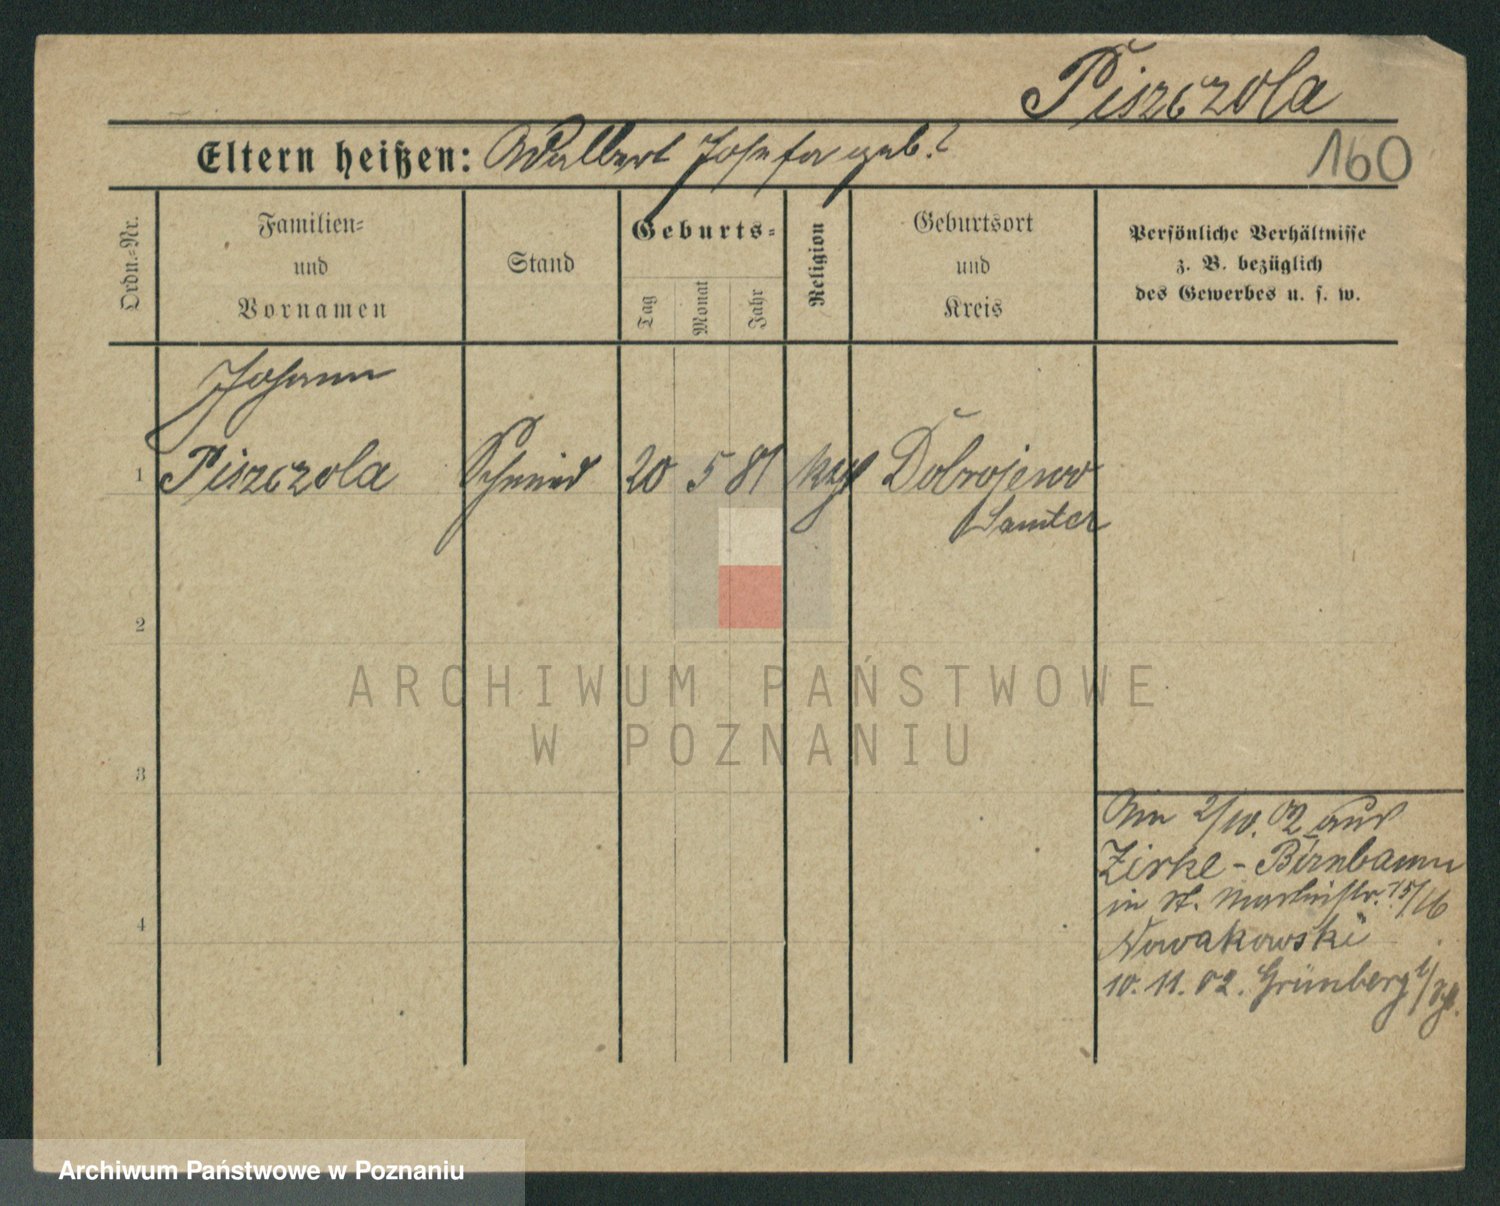 Piszczola
160
Eltern heißen: Adalbert Josefa geb. ?
Ordn.-Nr.
Familien-
und
Vornamen
Stand
Geburts-
Tag
Monat
Jahr
Religion
Geburtsort
und
Kreis
Persönliche Verhältnisse
z. B. bezüglich
des Gewerbes u. s. w.
Johann
1 Piszczola Schmied 20 5 81 kath Dobrojewo
Samter
2
3
4
ARCHIWUM PAŃSTWOWE
W POZNANIU
2/10. 02 aus
Zirke - Birnbaum
in St. Martinstr. 15/16
Nowakowski
10. 11. 02. Grünberg i/
Archiwum Państwowe w Poznaniu